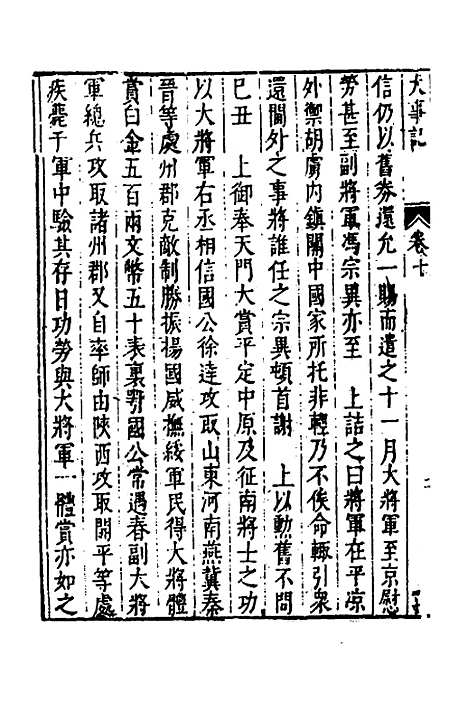 大事記 卷十
信仍以舊券還允一賜而遣之十一月大將軍至京慰
勞甚至副將軍馮宗異亦至 上詰之曰將軍在平凉
外禦胡虜内鎮關中國家所托非輕乃不俟命輒引衆
還閫外之事將誰任之宗異頓首謝 上以勲舊不問
己丑 上御奉天門大賞平定中原及征南將士之功
以大將軍右丞相信國公徐逹攻取山東河南燕冀秦
晉等處州郡克敵制勝振揚國威撫綏軍民得大將體
賞白金五百兩文幣五十表裏鄂國公常遇春副大將
軍總兵攻取諸州郡又自率師由陝西攻取開平等處
疾薨于軍中驗其存日功勞與大將軍一體賞亦如之